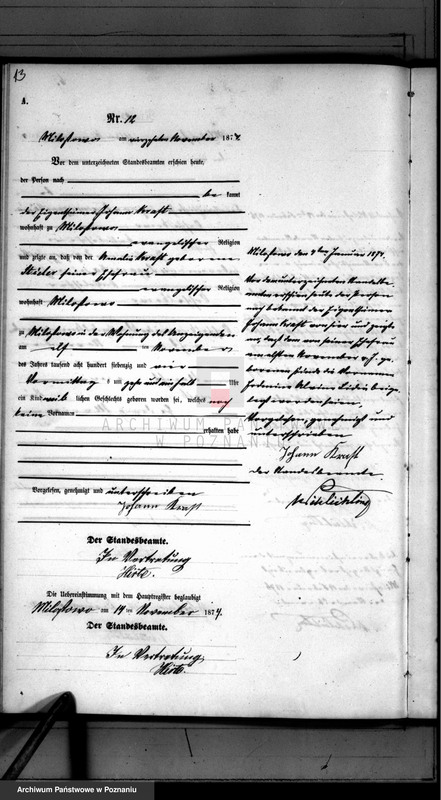 13
A.
Nr. 12
Milostowo am vierzehnten November 1874.
Vor dem unterzeichneten Standesbeamten erschien heute,
der Person nach
be kannt
der Eigenthümer Johann Kraft
wohnhaft zu Milostowo
evangelischer Religion
und zeigte an, daß von der Amalie Kraft geborene
seiner Ehefrau
evangelischer Religion
wohnhaft Milostowo
zu Milostowo in der Wohnung des Anzeigenden
am elf ten November
des Jahres tausend acht hundert siebenzig und vier
Vormittag s um zehn und einhalb Uhr
ein Kind weib lichen Geschlechts geboren worden sei, welches noch
keine Vornamen
erhalten habe
Vorgelesen, genehmigt und unterschrieben
Johann Kraft
Der Standesbeamte.
In Vertretung
Die Uebereinstimmung mit dem Hauptregister beglaubigt
Milostowo am 14 ten November 1874.
Der Standesbeamte.
In Vertretung
Milostowo den Januar
Vor dem unterzeichneten Standesbe-
amten erschien heute der Person
nach bekannt der Eigenthümer
Johann Kraft von hier und zeigte
an, daß dem von seiner Ehefrau
am elften November v. J. ge-
borenen Kinde die Vornamen
beige-
legt worden seien.
Vorgelesen, genehmigt und
unterschrieben
Johann Kraft
der Standesbeamte
ARCHIWUM PAŃSTWOWE
W POZNANIU
Archiwum Państwowe w Poznaniu